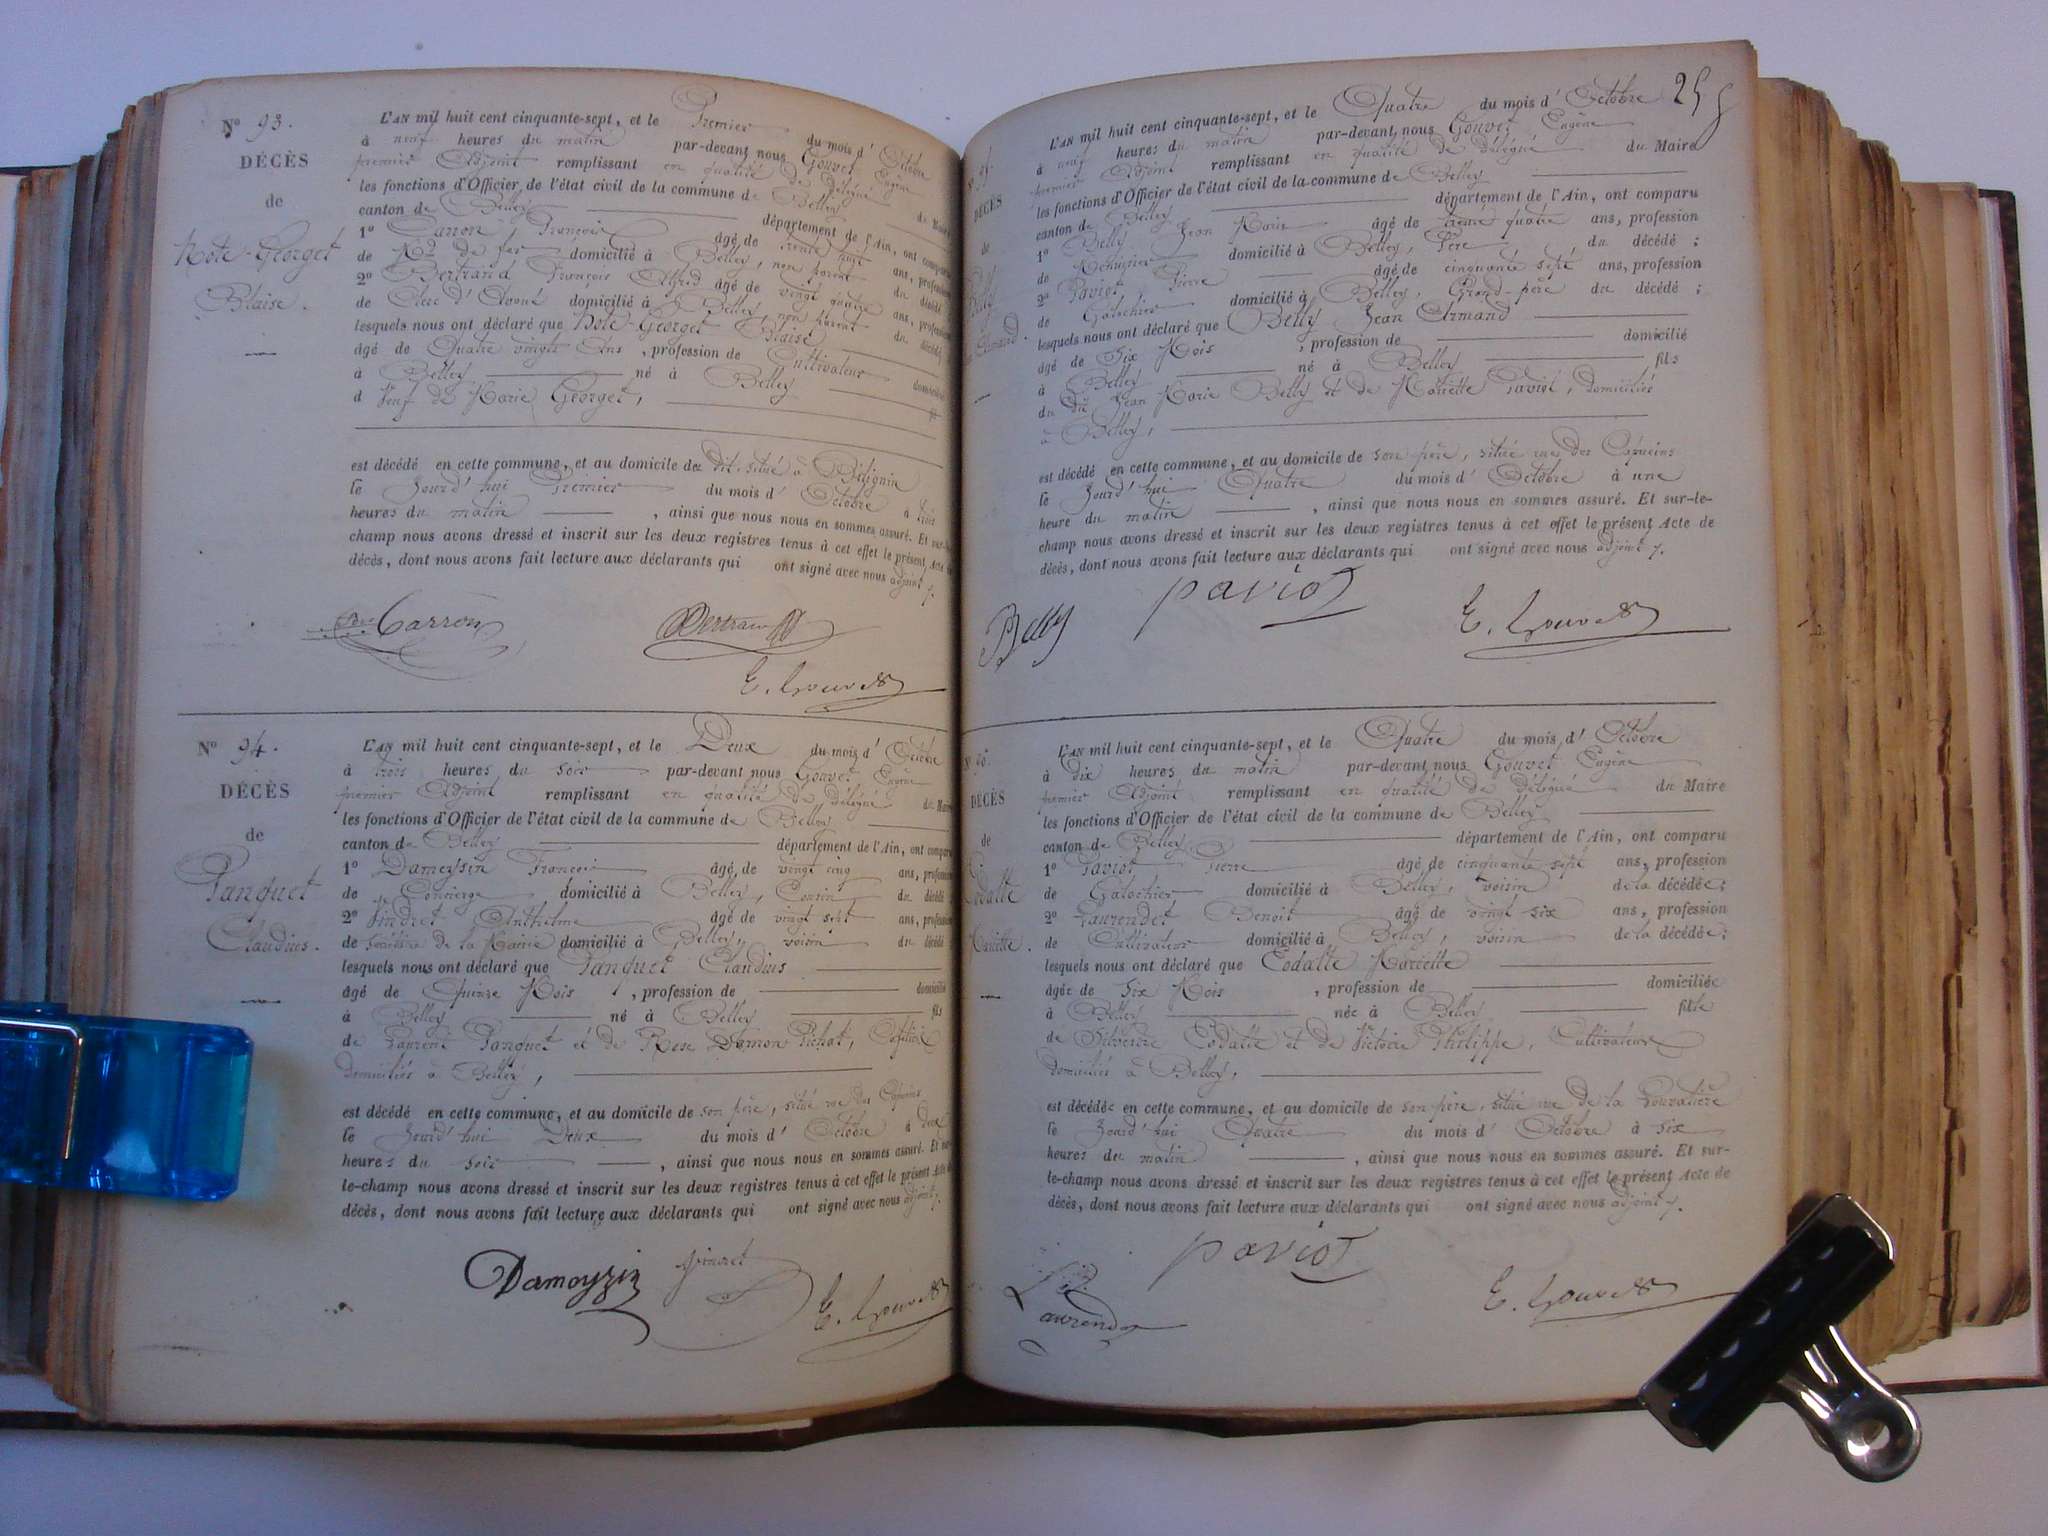 N° 93.
DÉCÈS
de
Note-Georget
Blaise.
L'AN mil huit cent cinquante-sept, et le Premier du mois d' Octobre
à neuf heures du matin par-devant nous Gouvet Eugène
premier Adjoint remplissant en qualité de délégué du Maire
les fonctions d'Officier de l'état civil de la commune de Belley
canton de Belley département de l'Ain, ont comparu
1° Carron François âgé de trente huit ans, profession
de Md de fer domicilié à Belley, non parent du décédé
2° Bertrand François Alfred âgé de vingt quatre ans, profession
de Clerc d'Avoué domicilié à Belley, non parent du décédé
lesquels nous ont déclaré que Note-Georget Blaise
âgé de Quatre vingts Ans, profession de Cultivateur domicilié
à Belley né à Belley fils
d Veuf de Marie Georget,
est décédé en cette commune, et au domicile de situé à Bétignin
le Jourd'hui Premier du mois d' Octobre à trois
heures du matin, ainsi que nous nous en sommes assuré. Et sur-le-
champ nous avons dressé et inscrit sur les deux registres tenus à cet effet le présent Acte de
décès, dont nous avons fait lecture aux déclarants qui ont signé avec nous adjoint /.
Carron Bertrand
E. Gouvet
N° 94.
DÉCÈS
de
Panquet
Claudius.
L'AN mil huit cent cinquante-sept, et le Deux du mois d' Octobre
à trois heures du soir par-devant nous Gouvet Eugène
premier Adjoint remplissant en qualité de délégué du Maire
les fonctions d'Officier de l'état civil de la commune de Belley
canton de Belley département de l'Ain, ont comparu
1° Dameysin François âgé de vingt cinq ans, profession
de Concierge domicilié à Belley, Cousin du décédé
2° Vindret Anthelme âgé de vingt sept ans, profession
de Secrétaire de la Mairie domicilié à Belley, voisin du décédé
lesquels nous ont déclaré que Panquet Claudius
âgé de Quinze Mois, profession de domicilié
à Belley né à Belley fils
de Laurent Panquet et de Rose Pichat,
domiciliés à Belley,
est décédé en cette commune, et au domicile de son père, situé rue des Capucins
le Jourd'hui Deux du mois d' Octobre à deux
heures du soir, ainsi que nous nous en sommes assuré. Et sur-
le-champ nous avons dressé et inscrit sur les deux registres tenus à cet effet le présent Acte de
décès, dont nous avons fait lecture aux déclarants qui ont signé avec nous adjoint /.
Dameyzin Vindret
E. Gouvet
DÉCÈS
de
Belly
Armand.
L'AN mil huit cent cinquante-sept, et le Quatre du mois d' Octobre
à neuf heures du matin par-devant nous Gouvet Eugène
premier Adjoint remplissant en qualité de délégué du Maire
les fonctions d'Officier de l'état civil de la commune de Belley
canton de Belley département de l'Ain, ont comparu
1° Belly Jean Marie âgé de trente quatre ans, profession
de Menuisier domicilié à Belley, Père, du décédé ;
2° Paviot Pierre âgé de cinquante sept ans, profession
de Galochier domicilié à Belley, Grand-père du décédé ;
lesquels nous ont déclaré que Belly Jean Armand
âgé de Six Mois, profession de domicilié
à Belley né à Belley fils
du dit Jean Marie Belly et de Mariette Paviot, domiciliés
à Belley,
est décédé en cette commune, et au domicile de son père, situé rue des Capucins
le Jourd'hui Quatre du mois d' Octobre à une
heure du matin, ainsi que nous nous en sommes assuré. Et sur-le-
champ nous avons dressé et inscrit sur les deux registres tenus à cet effet le présent Acte de
décès, dont nous avons fait lecture aux déclarants qui ont signé avec nous adjoint /.
Belly paviot E. Gouvet
DÉCÈS
de
Codalte
Mariette.
L'AN mil huit cent cinquante-sept, et le Quatre du mois d' Octobre
à dix heures du matin par-devant nous Gouvet Eugène
premier Adjoint remplissant en qualité de délégué du Maire
les fonctions d'Officier de l'état civil de la commune de Belley
canton de Belley département de l'Ain, ont comparu
1° Paviot Pierre âgé de cinquante sept ans, profession
de Galochier domicilié à Belley, voisin de la décédée ;
2° Laurendet Benoit âgé de vingt six ans, profession
de Cultivateur domicilié à Belley, voisin de la décédée ;
lesquels nous ont déclaré que Codalte Mariette
âgée de Six Mois, profession de domiciliée
à Belley née à Belley fille
de Silvestre Codalte et de Victoire Philippe, Cultivateurs
domiciliés à Belley,
est décédée en cette commune, et au domicile de son père, situé rue de la
le Jourd'hui Quatre du mois d' Octobre à six
heures du matin, ainsi que nous nous en sommes assuré. Et sur-
le-champ nous avons dressé et inscrit sur les deux registres tenus à cet effet le présent Acte de
décès, dont nous avons fait lecture aux déclarants qui ont signé avec nous adjoint /.
paviot
E. Gouvet